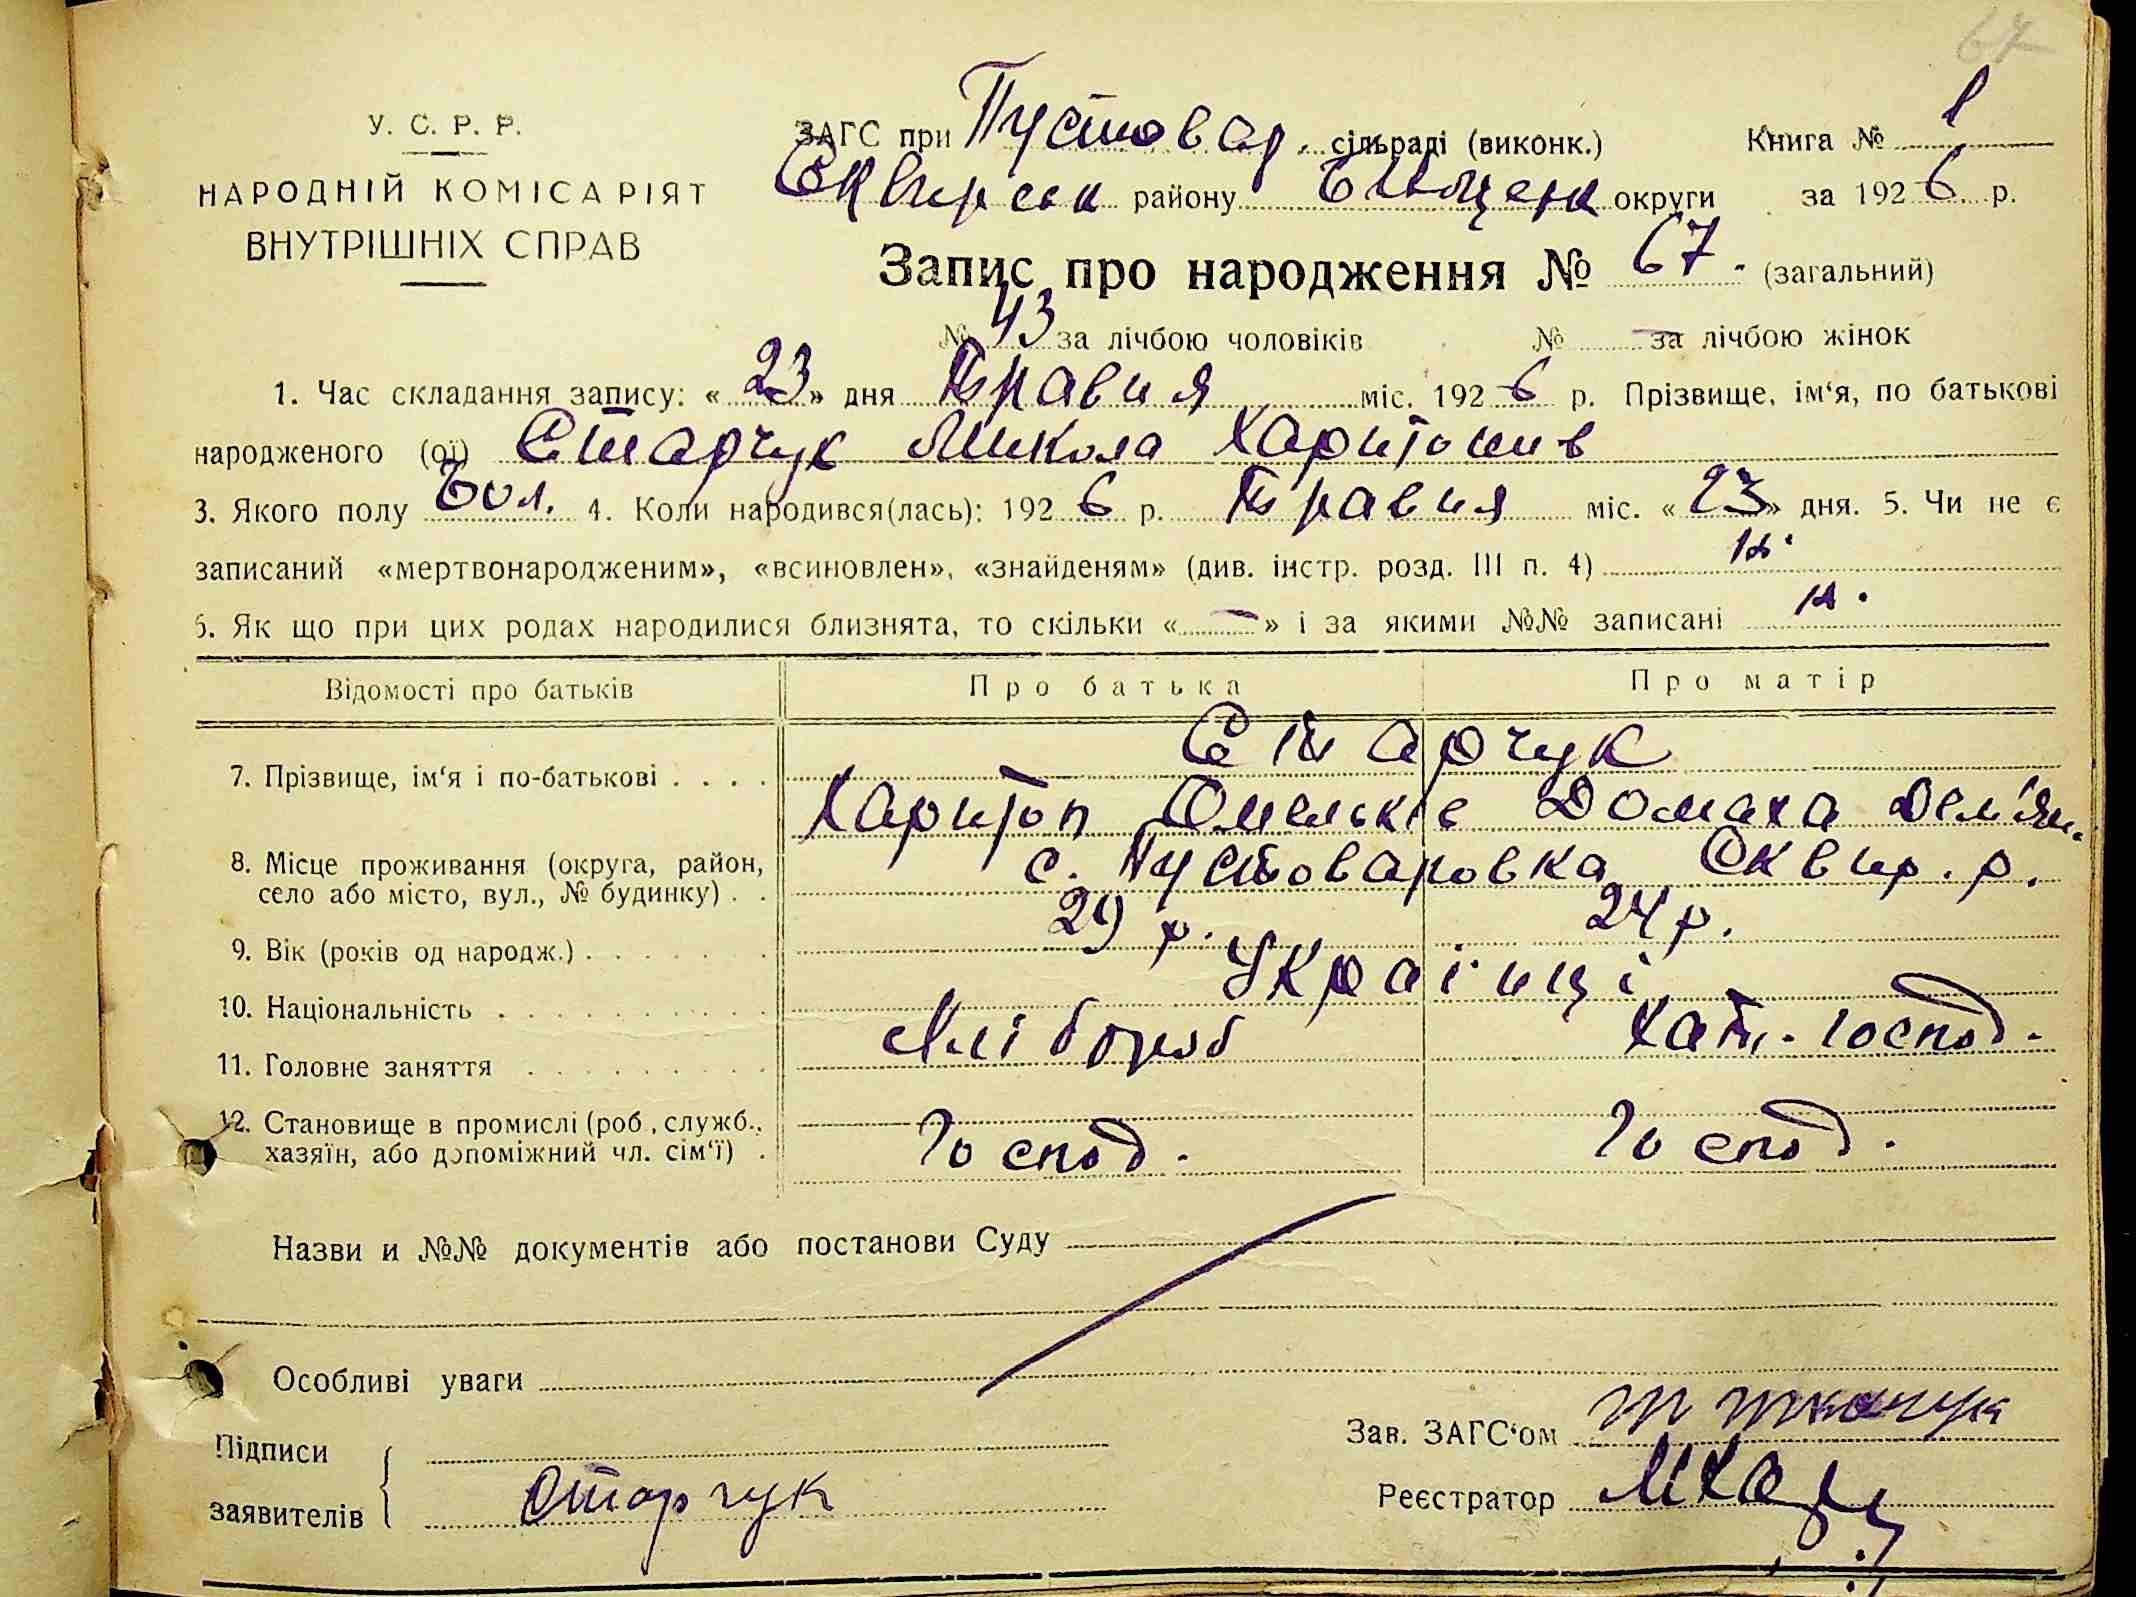 67
У. С. Р. Р.
НАРОДНІЙ КОМІСАРІЯТ
ВНУТРІШНІХ СПРАВ
ЗАГС при Пустовар. сільраді (виконк.) Книга № 1
Сквирськ району Білоцерк округи за 1926 р.
Запис про народження № 67. (загальний)
№ 43 за лічбою чоловіків № — за лічбою жінок
1. Час складання запису: «23» дня Травня міс. 1926 р. Прізвище, ім‘я, по батькові
народженого (ої) Старчук Микола Харитонів
3. Якого полу Чол. 4. Коли народився(лась): 1926 р. Травня міс. «23» дня. 5. Чи не є
записаний «мертвонародженим», «всиновлен», «знайденям» (див. інстр. розд. III п. 4) н.
6. Як що при цих родах народилися близнята, то скільки «—» і за якими №№ записані н.
Відомості про батьків Про батька Про матір
7. Прізвище, ім‘я і по-батькові . . . . Старчук
Харитон Омельків Домаха Дем'ян.
8. Місце проживання (округа, район,
село або місто, вул., № будинку) . . с. Пустоваровка Сквир. р.
9. Вік (років од народж.) . . . . . . . 29 р. 24 р.
10. Національність . . . . . . . . . . . Українці
11. Головне заняття . . . . . . . . . Хлібороб Хатн. Господ.
12. Становище в промислі (роб., служб.,
хазяїн, або допоміжний чл. сім‘ї) . Господ. Господ.
Назви и №№ документів або постанови Суду
Особливі уваги
Підписи
заявителів Старчук
Зав. ЗАГС‘ом Т Ткачук
Реєстратор